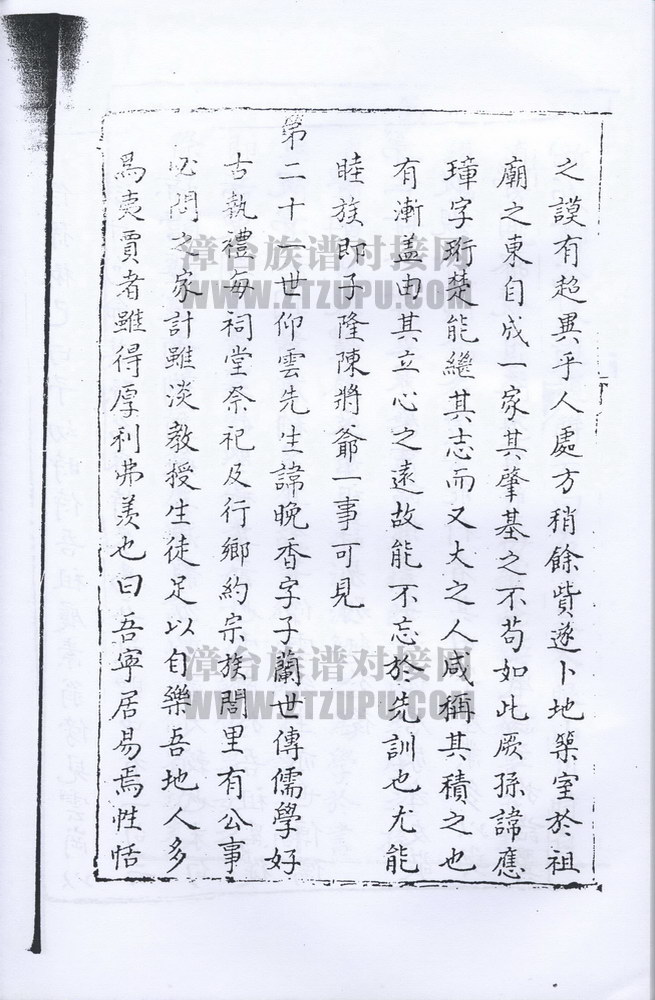 之謨有超異乎人處方稍餘貲遂卜地築室於祖
廟之東自成一家其肇基之不苟如此厥孫諱應
璋字珩楚能繼其志而又大之人咸稱其積之也
有漸盖由其立心之遠故能不忘於先訓也尤能
睦族即子隆陳將爺一事可見
第二十一世仰雲先生諱晚香字子蘭世傳儒學好
古執禮每祠堂祭祀及行鄉約宗族閭里有公事
必問之家計雖淡教授生徒足以自樂吾地人多
為夷賈者雖得厚利弗羡也曰吾寧居易焉性恬
漳台族谱对接网
WWW.ZTZUPU.COM
漳台族谱对接网
WWW.ZTZUPU.COM